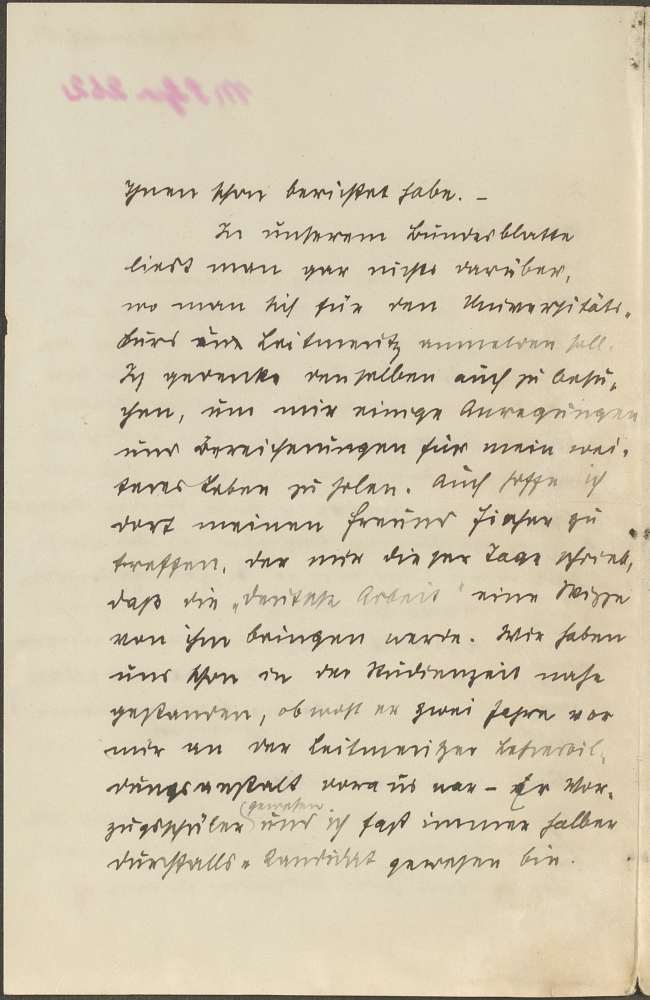 Ihnen schon berichtet habe. –
In unserem Bundesblatte
liest man gar nichts darüber,
wo man sich für den Universitäts-
kurs in Leitmeritz anmelden soll.
Ich gedenke denselben auch zu besu-
chen, um mir einige Anregungen
und Bereicherungen für mein wei-
teres Leben zu holen. Auch hoffe ich
dort meinen Freund Fischer zu
treffen, der mir dieser Tage schrieb,
daß die „Deutsche Arbeit“ eine Skizze
von ihm bringen werde. Wir haben
uns schon in der Studienzeit nahe
gestanden, obwohl er zwei Jahre vor
mir an der Leitmeritzer Lehrerbil-
dungsanstalt voraus war – Er Vor-
zugsschüler (gewesen) und ich fast immer halber
Durchfalls-Kandidat gewesen bin.